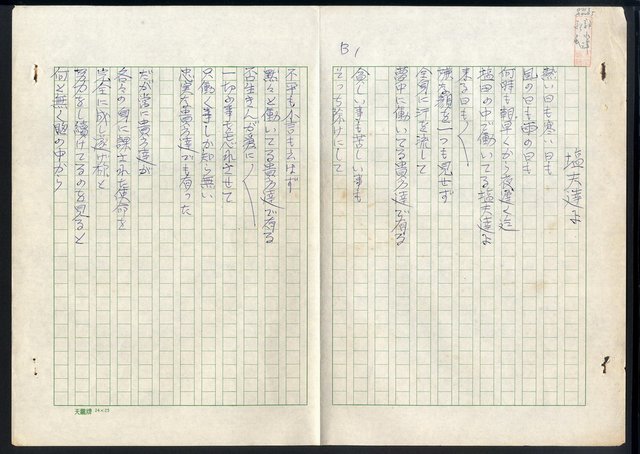 B1
塩夫達よ
熱い日も寒い日も
風の日も雨の日も
何時も朝早くから夜遅く迄
塩田の中で働いてる塩夫達よ
来る日も
嫌な顔を一つも見せず
全身に汗を流して
夢中に働いてる貴方達で有る
愈しい事も苦しい事も
そっち除けにして
不平も不言も云はず
黙々と働いてる貴方達で有る
否生きんが為に
一切の事を忘れさせて
只働く事しか知ら無い
忠実な貴方達でも有った
だが常に貴方達が
各々の身に課された使命を
完全に成し遂げ様と
努力をし續けてるのを見ると
何と無く眼の中から
天鵝牌 24×25